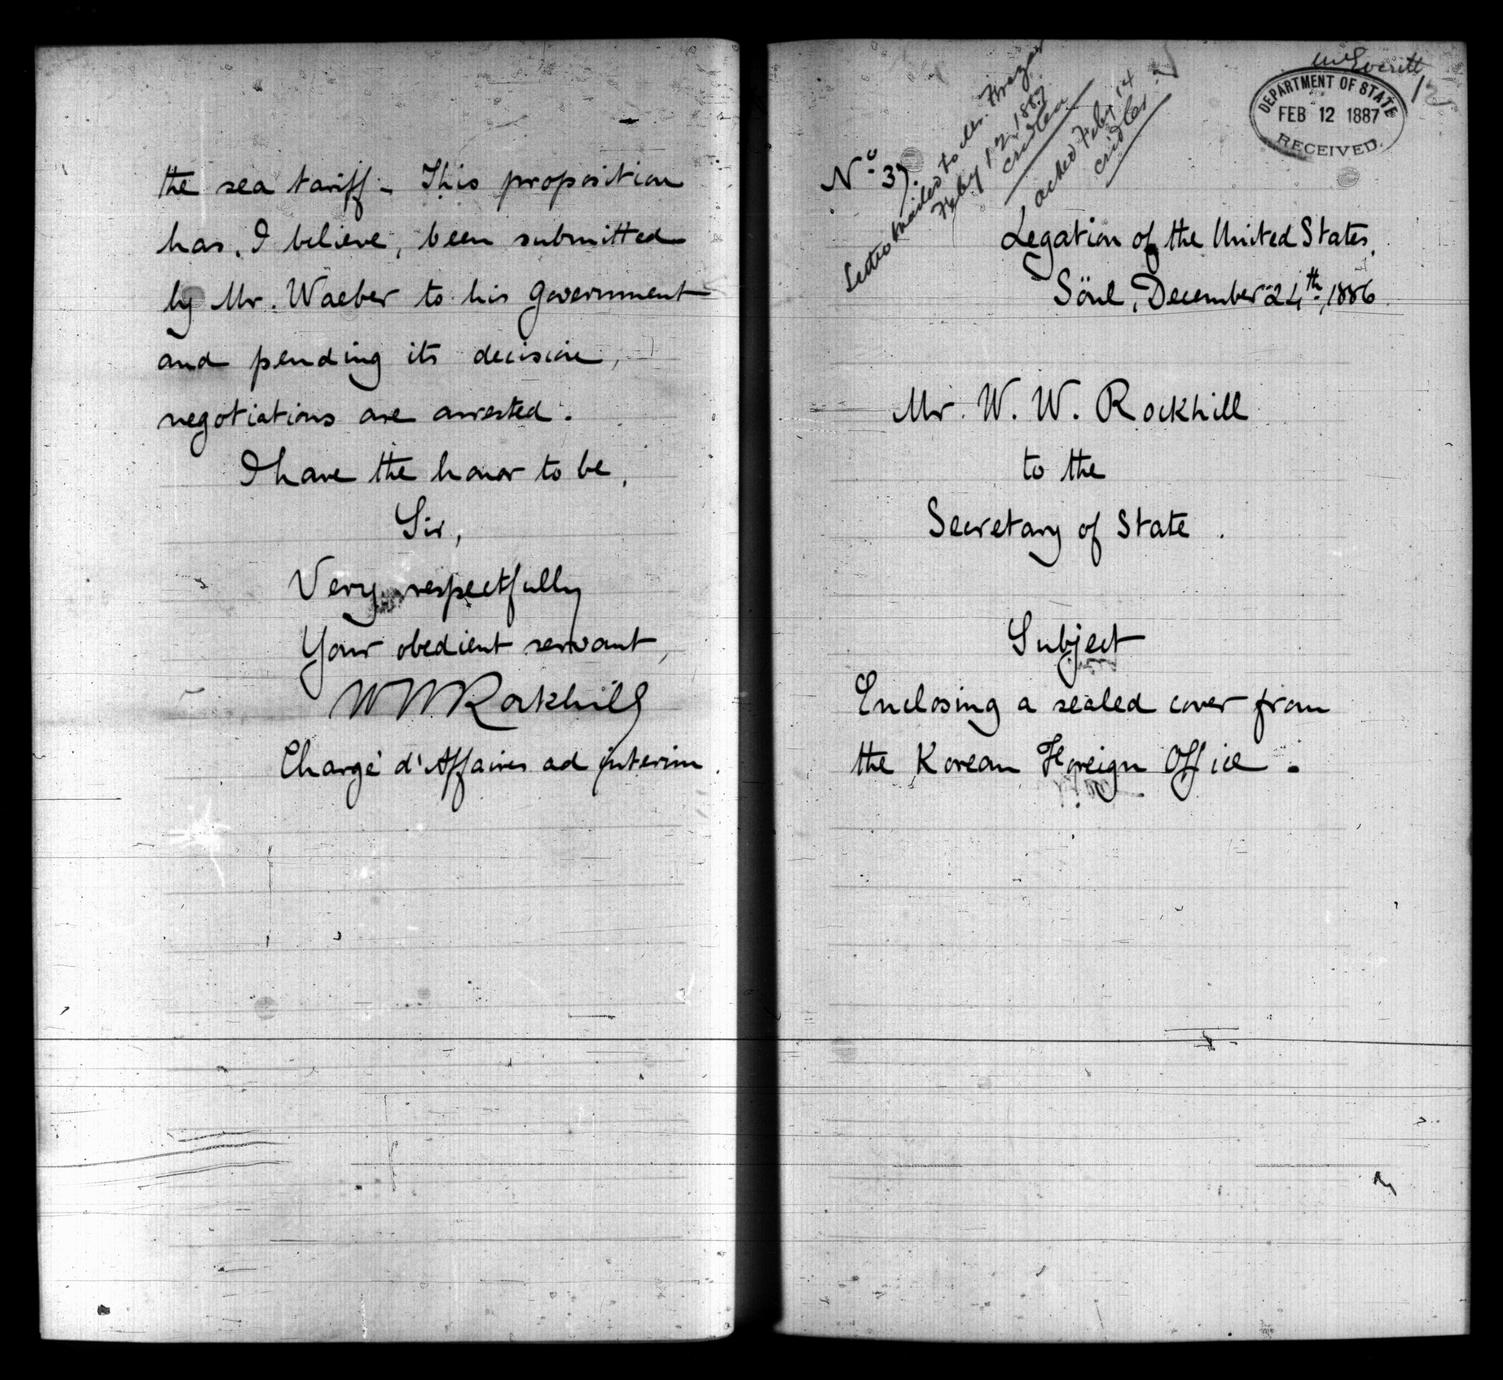 the sea tariff - This proposition
has, I believe, been submitted
by Mr. Waeber to his Government
and pending its decision,
negotiations are arrested.
I have the honor to be,
Sir,
Very respectfully
Your obedient servant,
W W Rockhill
Chargé d'Affaires ad interim.
Mr Everett
12
DEPARTMENT OF STATE
FEB 12 1887
RECEIVED.
Letter mailed to Mr. Frazar
Feby 12, 1887
Cridler
acked Feby 14
Cridler
No 37.
Legation of the United States.
Söul, December 24th, 1886
Mr. W. W. Rockhill
to the
Secretary of State.
Subject
Enclosing a sealed cover from
the Korean Foreign Office.